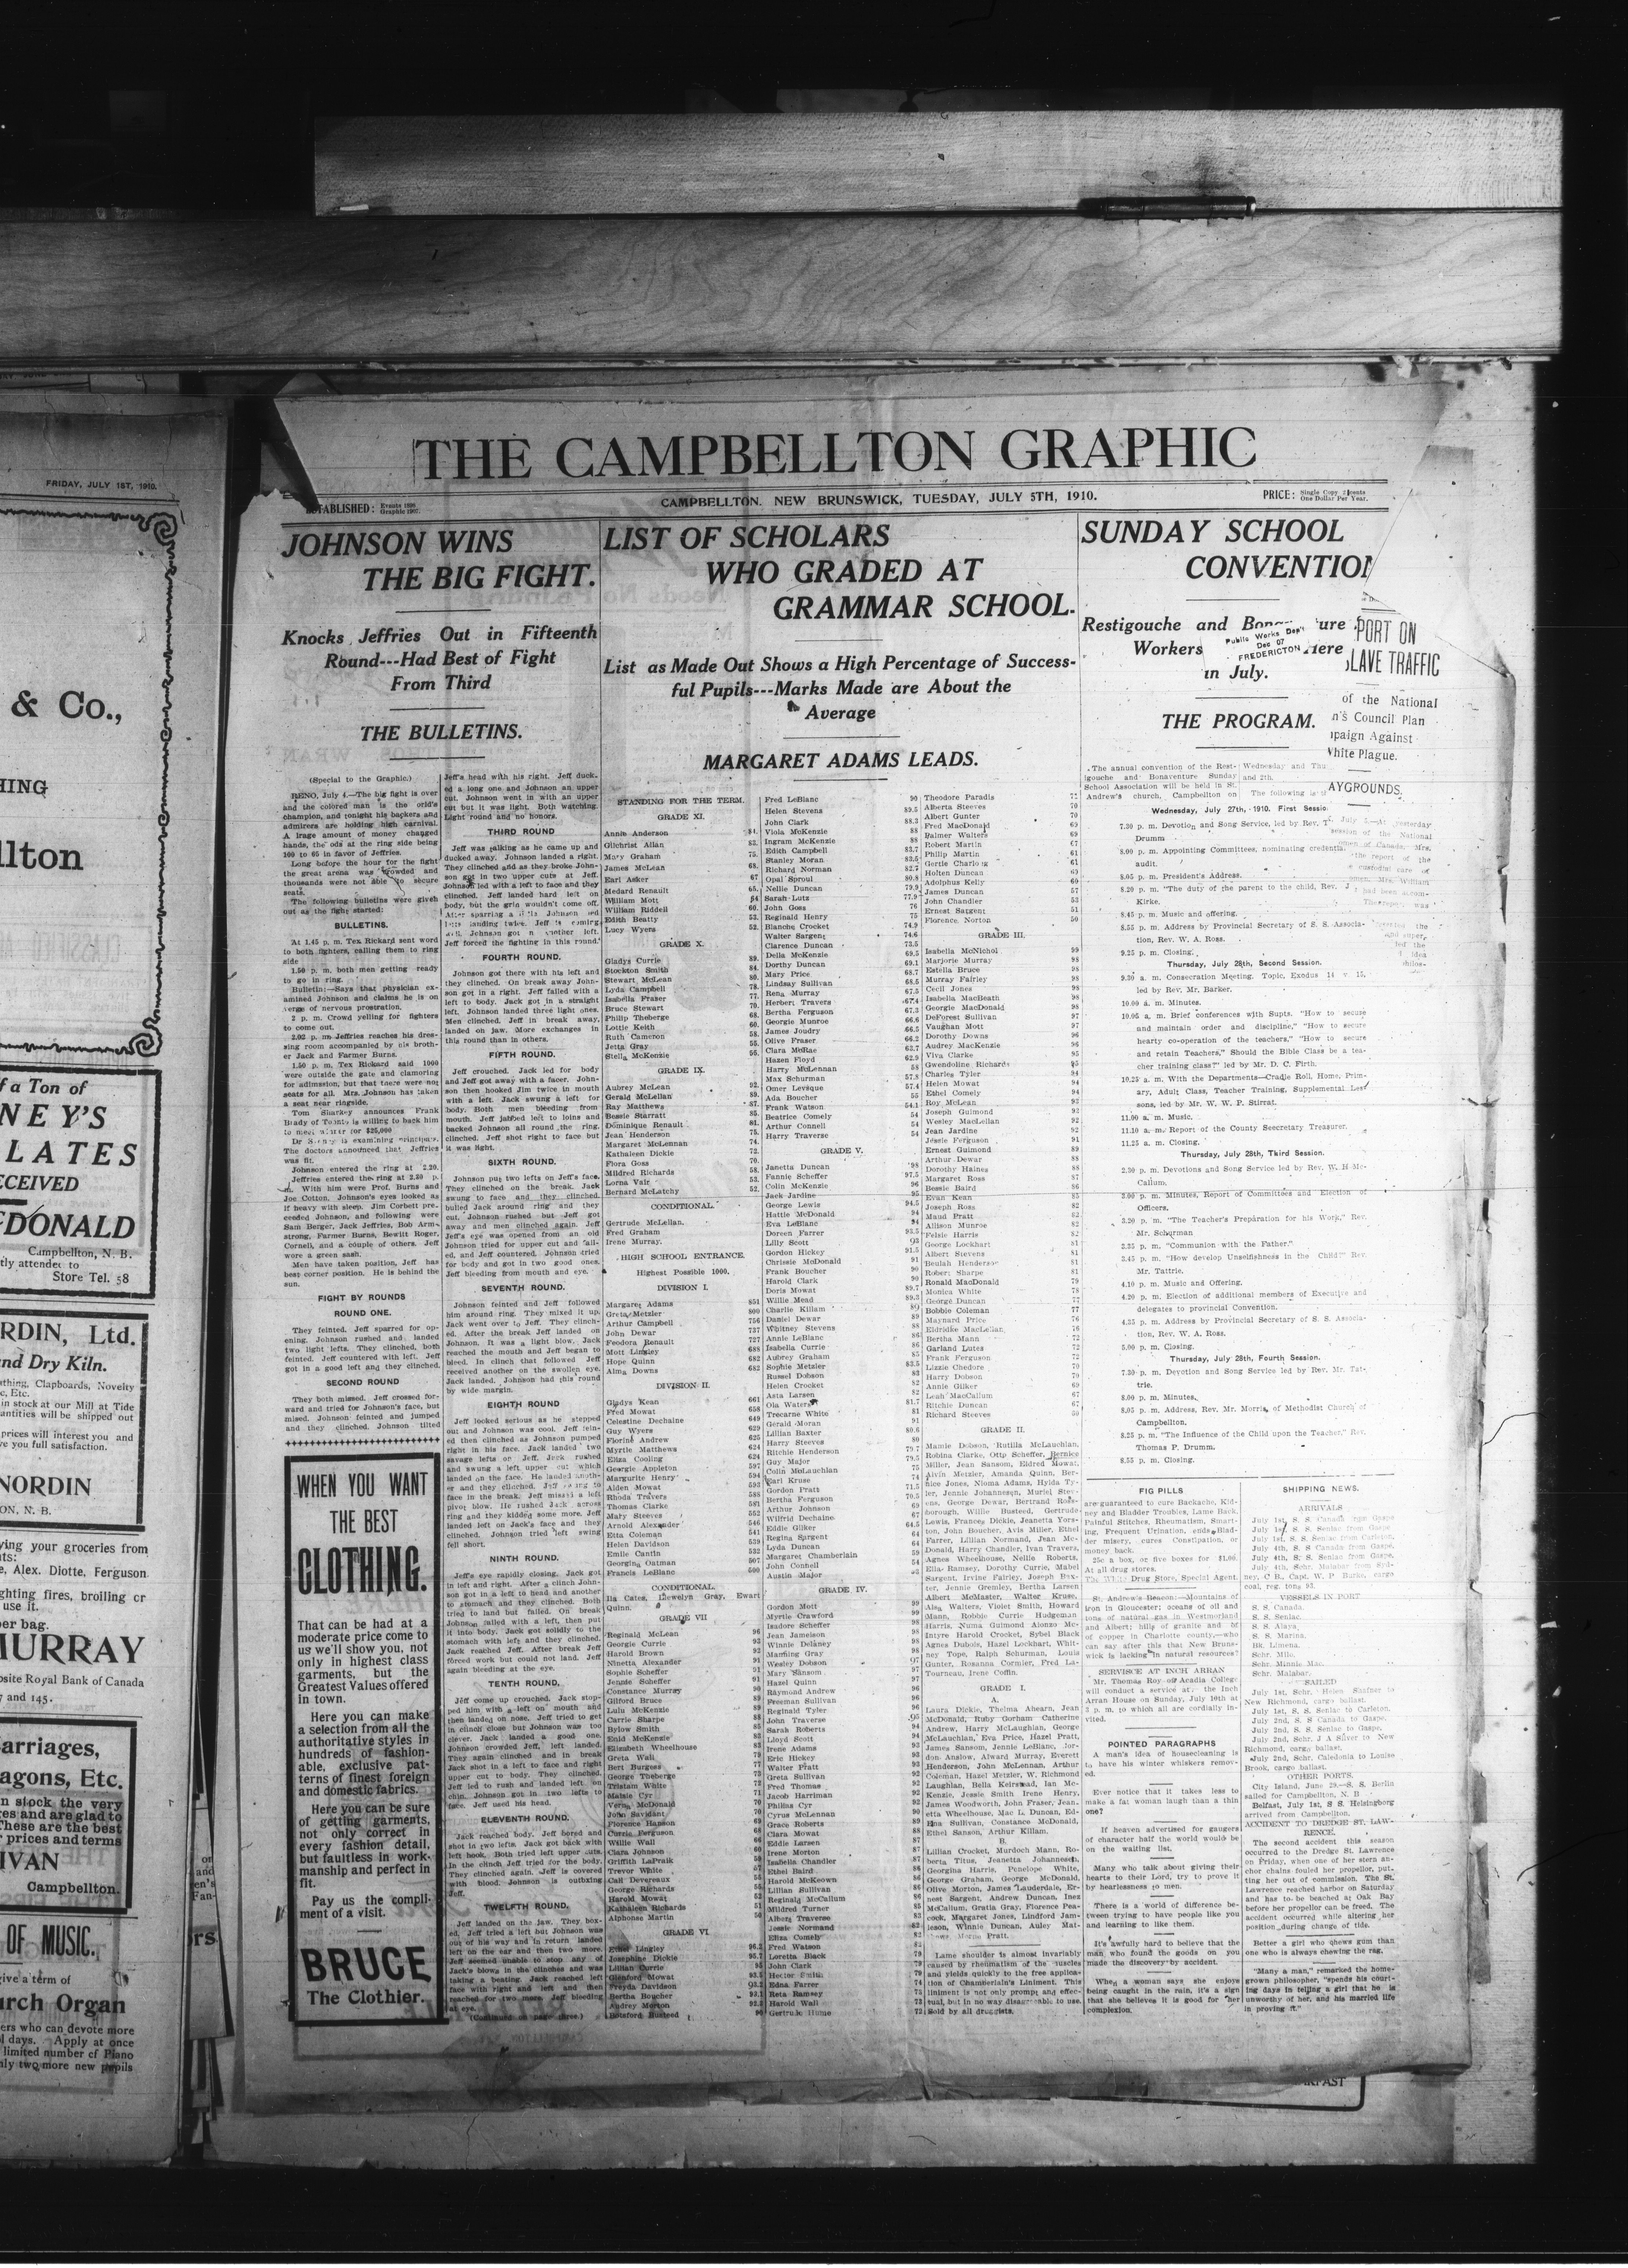 FRIDAY, JULY 1ST, 1910.
& Co.,
HING
llton
f a Ton of
NEY'S
LATES
ECEIVED
DONALD
Campbellton, N. B.
tly attended to
Store Tel. 58
RDIN, Ltd.
nd Dry Kiln.
athing, Clapboards, Novelty
c, Etc.
in stock at our Mill at Tide
antities will be shipped out
prices will interest you and
ve you full satisfaction.
NORDIN
ON, N. B.
ying your groceries from
nts:
e, Alex. Diotte, Ferguson
ghting fires, broiling or
use it.
per bag.
MURRAY
posite Royal Bank of Canada
7 and 145.
arriages,
agons, Etc.
n stock the very
res and are glad to
These are the best
r prices and terms
IVAN
Campbellton.
OF MUSIC.
give a term of
urch Organ
ers who can devote more
l days. Apply at once
limited number of Piano
nly two more new pupils
THE CAMPBELLTON GRAPHIC
ESTABLISHED: Events 1896
Graphic 1907.
CAMPBELLTON. NEW BRUNSWICK, TUESDAY, JULY 5TH, 1910.
PRICE: Single Copy 2 cents
One Dollar Per Year.
JOHNSON WINS
THE BIG FIGHT.
Knocks Jeffries Out in Fifteenth
Round---Had Best of Fight
From Third
THE BULLETINS.
(Special to the Graphic.)
RENO, July 4.—The big fight is over
and the colored man is the orld's
champion, and tonight his backers and
admirers are holding high carnival.
A lrage amount of money changed
hands, the ods at the ring side being
100 to 65 in favor of Jeffries.
Long before the hour for the fight
the great arena was crowded and
thousands were not able to secure
seats.
The following bulletins were given
out as the fight started:
BULLETINS.
At 1.45 p. m. Tex Rickard sent word
to both fighters, calling them to ring
side
1.50 p. m. both men getting ready
to go in ring.
Bulletin:—Says that physician ex-
amined Johnson and claims he is on
verge of nervous prostration.
2 p. m. Crowd yelling for fighters
to come out.
2.02 p. m. Jeffries reaches his dres-
sing room accompanied by his broth-
er Jack and Farmer Burns.
1.50 p. m. Tex Rickard said 1000
were outside the gate and clamoring
for adimssion, but that there were no
seats for all. Mrs. Johnson has taken
a seat near ringside.
Tom Sharkey announces Frank
is willing to back him
to meet winner for $25,000
is examining principals.
The doctors announced that Jeffries
was fit.
Johnson entered the ring at 2.20.
Jeffries entered the ring at 2.30 p.
m. With him were Prof. Burns and
Joe Cotton. Johnson's eyes looked as
if heavy with sleep. Jim Corbett pre-
ceeded Johnson, and following were
Sam Berger, Jack Jeffries, Bob Arm-
strong, Farmer Burns, Bewitt Roger,
Cornell, and a couple of others. Jeff
wore a green sash.
Men have taken position, Jeff has
best corner position. He is behind the
sun.
FIGHT BY ROUNDS
ROUND ONE.
They feinted. Jeff sparred for op-
ening. Johnson rushed and landed
two light lefts. They clinched, both
feinted. Jeff countered with left. Jeff
got in a good left and they clinched.
SECOND ROUND
They both missed. Jeff crossed for-
ward and tried for Johnson's face, but
mised. Johnson feinted and jumped
and they clinched. Johnson tilted
WHEN YOU WANT
THE BEST
CLOTHING.
That can be had at a
moderate price come to
us we'll show you, not
only in highest class
garments, but the
Greatest Values offered
in town.
Here you can make
a selection from all the
authoritative styles in
hundreds of fashion-
able, exclusive pat-
terns of finest foreign
and domestic fabrics.
Here you can be sure
of getting garments,
not only correct in
every fashion detail,
but faultless in work-
manship and perfect in
fit.
Pay us the compli-
ment of a visit.
BRUCE
The Clothier.
Jeff's head with his right. Jeff duck-
ed a long one and Johnson an upper
cut. Johnson went in with an upper
cut but it was light. Both watching.
Light round and no honors.
THIRD ROUND
Jeff was walking as he came up and
ducked away. Johnson landed a right.
They clinched and as they broke John-
son got in two upper cuts at Jeff.
Johnson led with a left to face and they
clinched. Jeff landed hard left on
body, but the grin wouldn't come off.
Jeff forced the fighting in this round.
FOURTH ROUND.
Johnson got there with his left and
they clinched. On break away John-
son got in a right. Jeff failed with a
left to body. Jack got in a straight
left. Johnson landed three light ones.
Men clinched. Jeff in break away,
landed on jaw. More exchanges in
this round than in others.
FIFTH ROUND.
Jeff crouched. Jack led for body
and Jeff got away with a facer. John-
son then hooked Jim twice in mouth
with a left. Jack swung a left for
body. Both men bleeding from
mouth. Jeff jabbed left to loins and
backed Johnson all round the ring.
clinched. Jeff shot right to face but
it was light.
SIXTH ROUND.
Johnson put two lefts on Jeff's face.
They clinched on the break. Jack
swung to face and they clinched.
bulled Jack around ring and they
cut. Johnson rushed but Jeff got
away and men clinched again. Jeff
Jeff's eye was opened from an old
Johnson tried for upper cut and fail-
ed, and Jeff countered. Johnson tried
for body and got in two good ones.
Jeff bleeding from mouth and eye.
SEVENTH ROUND.
Johnson feinted and Jeff followed
him around ring. They mixed it up.
Jack went over to Jeff. They clinch-
ed. After the break Jeff landed on
Johnson. It was a light blow. Jack
reached the mouth and Jeff began to
bleed. In clinch that followed Jeff
received another on the swollen eye.
Jack landed. Johnson had this round
by wide margin.
EIGHTH ROUND
Jeff looked serious as he stepped
out and Johnson was cool. Jeff rein-
ed then clinched as Johnson pumped
right in his face. Jack landed two
savage lefts on Jeff. Jack rushed
and swung a left upper cut which
landed on the face. He landed anoth-
er and they clinched. Jeff swung to
face in the break. Jeff missed a left
pivot blow. He rushed Jack across
ring and they kidded some more. Jeff
landed left on Jack's face and they
clinched. Johnson tried left swing
fell short.
NINTH ROUND.
Jeff's eye rapidly closing. Jack got
in left and right. After a clinch John-
son got in a left to head and another
to stomach and they clinched. Both
tried to land but failed. On break
Johnson failed with a left, then put
it into body. Jack got solidly to the
stomach with left and they clinched.
Jack reached Jeff. After break Jeff
forced work but could not land. Jeff
again bleeding at the eye.
TENTH ROUND.
Jeff come up crouched. Jack stop-
ped him with a left on mouth and
then landed on nose. Jeff tried to get
in clinch close but Johnson was too
clever. Jack landed a good one.
Johnson crowded Jeff, left landed.
They again clinched and in break
Jack shot in a left to face and right
upper cut to body. They clinched.
Jeff led to rush and landed left on
chin. Johnson got in two lefts to
face. Jeff used his head.
ELEVENTH ROUND.
Jack reached body. Jeff bored and
shot in two lefts. Jack got back with
left hook. Both tried left upper cuts.
In the clinch Jeff tried for the body.
They clinched again. Jeff is covered
with blood. Johnson is outboxing
Jeff.
TWELFTH ROUND.
Jeff landed on the jaw. They box-
ed. Jeff tried a left but Johnson was
out of his way and in return landed
left on the ear and then two more.
Jeff seemed unable to stop any of
Jack's blows in the clinches and was
taking a beating. Jack reached left
face with right and left and then
reached for two more. Jeff bleeding
at eye.
(Continued on page three.)
LIST OF SCHOLARS
WHO GRADED AT
GRAMMAR SCHOOL.
List as Made Out Shows a High Percentage of Success-
ful Pupils---Marks Made are About the
Average
MARGARET ADAMS LEADS.
STANDING FOR THE TERM.
GRADE XI.
Annie Anderson 84.
Gilchrist Allan 83.
Mary Graham 75.
James McLean 68.
Earl Asker 67
Medard Renault 65.
William Mott 64
William Riddell 60.
Edith Beatty 53.
Lucy Wyers 52.
GRADE X.
Gladys Currie 89.
Stockton Smith 84.
Stewart McLean 80.
Lyda Campbell 78.
Isabella Fraser 77.
Bruce Stewart 70.
Philip Theberge 68.
Lottie Keith 60.
Ruth Cameron 58.
Jetta Gray 56.
Stella McKenzie 56.
GRADE IX.
Aubrey McLean 92.
Gerald McLellan 89.
Ray Matthews 87.
Bessie Starratt 85.
Dominique Renault 81.
Jean Henderson 75.
Margaret McLennan 74.
Kathaleen Dickie 72.
Flora Goss 70.
Mildred Richards 58.
Lorna Vair 53.
Bernard McLatchy 52.
CONDITIONAL.
Gertrude McLellan.
Fred Graham
Irene Murray.
HIGH SCHOOL ENTRANCE.
Highest Possible 1000.
DIVISION I.
Margaret Adams 851
Greta Metzler 800
Arthur Campbell 756
John Dewar 737
Feodora Renault 727
Mott Lingley 688
Hope Quinn 682
Alma Downs 682
DIVISION II.
Gladys Kean 661
Fred Mowat 658
Celestine Dechaine 649
Guy Wyers 629
Florine Andrew 625
Myrtle Matthews 624
Eliza Cooling 624
Georgie Appleton 597
Margurite Henry 594
Alden Mowat 593
Rhoda Travers 588
Thomas Clarke 581
Mary Steeves 552
Arnold Alexander 546
Etta Coleman 541
Helen Davidson 539
Emile Cantin 532
Georgina Oatman 507
Francis LeBlanc 500
CONDITIONAL.
Ila Cates, Llewelyn Gray, Ewart
Quinn.
GRADE VII
Reginald McLean 96
Georgie Currie 93
Harold Brown 92
Ninetta Alexander 91
Sophie Scheffer 91
Jennie Scheffer 91
Constance Murray 90
Gilford Bruce 89
Lulu McKenzie 89
Carrie Sharpe 88
Bylow Smith 85
Enid McKenzie 83
Elizabeth Wheelhouse 83
Greta Wall 79
Bert Burgess 77
George Theberge 73
Tristam White 72
Matsie Cyr 71
Verna McDonald 70
John Savidant 70
Florence Hanson 69
Currie Ferguson 68
Willie Wall 66
Clara Johnson 60
Griffith LaPraik 59
Trevor White 57
Call Devereaux 55
George Richards 53
Harold Mowat 52
Kathaleen Richards 51
Alphonse Martin 50
GRADE VI.
Ethel Lingley 96.2
Josephine Dickie 95.7
Lillian Currie 95
Glenford Mowat 93.5
Freyda Davidson
Bertha Boucher 93.1
Audrey Morton 92.2
Botsford Busteed 90
Fred LeBlanc 90
Helen Stevens 89.5
John Clark 88.3
Viola McKenzie 88
Ingram McKenzie 88
Edith Campbell 83.7
Stanley Moran 83.5
Richard Norman 82.7
Opal Sproul 80.8
Nellie Duncan 79.9
Sarah Lutz 77.9
John Goss 76
Reginald Henry 75
Blanche Crocket 74.9
Walter Sargent 74.6
Clarence Duncan 73.5
Della McKenzie 69.5
Dorthy Duncan 69.1
Mary Price 68.7
Lindsay Sullivan 68.5
Rena Murray 67.5
Herbert Travers 67.4
Bertha Ferguson 67.3
Georgie Munroe 66.6
James Joudry 66.5
Olive Fraser 66.2
Clara McRae 63.7
Hazen Floyd 62.9
Harry McLennan 58
Max Schurman 57.8
Omer Levesque 57.4
Ada Boucher 55
Frank Watson 54.1
Beatrice Comely 54
Arthur Connell 54
Harry Traverse 54
GRADE V.
Janetta Duncan 98
Fannie Scheffer 97.5
Colin McKenzie 96
Jack Jardine 95
George Lewis 94.5
Hattie McDonald 94
Eva LeBlanc 94
Doreen Farrer 93.5
Lilly Scott 93
Gordon Hickey 91.5
Chrissie McDonald 91
Frank Boucher 90
Harold Clark 90
Doris Mowat 89.7
Willie Mead 89.3
Charlie Killam 89
Daniel Dewar 89
Whitney Stevens 88
Annie LeBlanc 86
Isabella Currie 86
Aubrey Graham 85
Sophie Metzler 83.5
Russel Dobson 83
Helen Crocket 82
Asta Larsen 82
Ola Waters 81.7
Trecarne White 81
Gerald Moran 91
Lillian Baxter 80.6
Harry Steeves 80
Ritchie Henderson 79.7
Guy Major 79.5
Colin McLauchlan 75
Earl Kruse 74
Gordon Pratt 71.5
Bertha Ferguson 70.5
Arthur Johnson 69
Wilfrid Dechaine 67
Eddie Gilker 64.5
Regina Sargent 64
Lyda Duncan 60
Margaret Chamberlain 59
John Connell 54
Austin Major
GRADE IV.
Gordon Mott 99
Myrtle Crawford 99
Isadore Scheffer 99
Jean Jameison 98
Winnie Delaney 98
Manning Gray 98
Wesley Dobson 97
Mary Sansom 97
Hazel Quinn 96
Raymond Andrew 96
Freeman Sullivan 96
Reginald Tyler 96
John Traverse 95
Sarah Roberts 94
Lloyd Scott 94
Irene Adams 93
Eric Hickey 93
Walter Pratt 93
Greta Sullivan 93
Fred Thomas 92
Jacob Harriman 92
Philias Cyr 92
Cyrus McLennan 90
Grace Roberts 89
Clara Mowat 88
Eddie Larsen 87
Irene Morton 87
Isabella Chandler 87
Ethel Baird 86
Harold McKeown 86
Lillian Sullivan 86
Reginald McCallum 86
Mildred Turner 85
Albert Traverse 83
Jessie Normand 83
Eliza Comely 82
Fred Watson 82
Loretta Black 79
John Clark 79
Hector Smith 79
Edna Farrer 74
Reta Ramsey 73
Harold Wall 73
Gertrude Hume 72
Theodore Paradis 71
Alberta Steeves 70
Albert Gunter 70
Fred MacDonald 69
Palmer Walters 69
Robert Martin 67
Philip Martin 61
Gertie Charlong 61
Holten Duncan 60
Adolphus Kelly 60
James Duncan 57
John Chandler 53
Ernest Sargent 51
Florence Norton 50
GRADE III.
Isabella McNichol 99
Marjorie Murray 98
Estella Bruce 98
Murray Fairley 98
Cecil Jones 98
Isabella MacBeath 98
Georgie MacDonald 98
DeForest Sullivan 97
Vaughan Mott 97
Dorothy Downs 96
Audrey MacKenzie 96
Viva Clarke 95
Gwendoline Richards 95
Charles Tyler 94
Helen Mowat 94
Ethel Comely 94
Roy McLean 92
Joseph Guimond 92
Wesley MacLellan 92
Jean Jardine 92
Jessie Ferguson 91
Ernest Guimond 89
Arthur Dewar 88
Dorothy Haines 88
Margaret Ross 87
Bessie Baird 86
Evan Kean 85
Joseph Ross 82
Maud Pratt 82
Allison Munroe 82
Felsie Harris 82
George Lockhart 81
Albert Stevens 81
Beulah Henderson 81
Robert Sharpe 81
Ronald MacDonald 79
Monica White 78
George Duncan 77
Bobbie Coleman 77
Maynard Price 76
Eldridke MacLellan 76
Bertha Mann 72
Garland Lutes 72
Frank Ferguson 72
Lizzie Chedore 70
Harry Dobson 70
Annie Gilker 69
Leah MacCallum 67
Ritchie Duncan 67
Richard Steeves
GRADE II.
Mamie Dobson, Rutilla McLauchlan,
Robina Clarke, Otto Scheffer, Bernice
Miller, Jean Sansom, Eldred Mowat,
Alvin Metzler, Amanda Quinn, Ber-
nice Jones, Nioma Adams, Hylda Ty-
ler, Jennie Johannesen, Muriel Stev-
ens, George Dewar, Bertrand Ross-
borough, Willie Busteed, Gertrude
Lewis, Frances Dickie, Jeanetta Yors-
ton, John Boucher, Avis Miller, Ethel
Farrer, Lillian Normand, Jean Mc-
Donald, Harry Chandler, Ivan Travers,
Agnes Wheelhouse, Nellie Roberts,
Ella Ramsey, Dorothy Currie, Mabel
Sargent, Irvine Fairley, Joseph Bax-
ter, Jennie Gremley, Bertha Larsen
Albert McMaster, Walter Kruse,
Alea Walters, Violet Smith, Howard
Mann, Robbie Currie Hudgeman
Harris, Numa Guimond Alonzo Mc-
Intyre Harold Crocket, Sybel Black
Agnes Dubois, Hazel Lockhart, Whit-
ney Tope, Ralph Schurman, Louis
Gunter, Rosanna Cormier, Fred La-
Tourneau, Irene Coffin.
GRADE I.
A.
Laura Dickie, Thelma Ahearn, Jean
McDonald, Ruby Gorham Catherine
Andrew, Harry McLaughlan, George
McLauchlan, Eva Price, Hazel Pratt,
James Sansom, Jennie LeBlanc, Jor-
don Anslow, Alward Murray, Everett
Henderson, John McLennan, Arthur
Coleman, Hazel Metzler, W. Richmond
Laughlan, Bella Keirstead, Ian Mc-
Kenzie, Jessie Smith Irene Henry,
James Woodworth, John Fraser, Jean-
etta Wheelhouse, Mac L. Duncan, Ed-
ina Sullivan, Constance McDonald,
Ethel Sanson, Arthur Killam.
B.
Lillian Crocket, Murdoch Mann, Ro-
berta Titus, Jeanetta Johannesen,
Georgina Harris, Penelope White,
George Graham, George McDonald,
Olive Morton, James Lauderdale, Er-
nest Sargent, Andrew Duncan, Inez
McCallum, Gratia Gray, Florence Pea-
cock, Margaret Jones, Lindford Jam-
ieson, Winnie Duncan, Auley Mat-
thews, Morne Pratt.
Lame shoulder is almost invariably
caused by rheumatism of the muscles
and yields quickly to the free applica-
tion of Chamberlain's Liniment. This
liniment is not only prompt and effec-
tual, but in no way disagreeable to use.
Sold by all druggists.
SUNDAY SCHOOL
CONVENTION
Restigouche and Bonaventure
Workers Here
in July.
Public Works Dep't
Dec 07
FREDERICTON
THE PROGRAM.
PORT ON
LAVE TRAFFIC
of the National
n's Council Plan
paign Against
White Plague.
AYGROUNDS.
The annual convention of the Rest-
igouche and Bonaventure Sunday
School Association will be held in St.
Andrew's church, Campbellton on
Wednesday and Thu
and 2th.
The following is
Wednesday, July 27th, 1910. First Sessio
7.30 p. m. Devotion and Song Service, led by Rev. T.
Drumm
8.00 p. m. Appointing Committees, nominating credentia
audit.
8.05 p. m. President's Address.
8.20 p. m. "The duty of the parent to the child, Rev. J
Kirke.
8.45 p. m. Music and offering.
8.55 p. m. Address by Provincial Secretary of S. S. Associa-
tion, Rev. W. A. Ross.
9.25 p. m. Closing.
Thursday, July 28th, Second Session.
9.30 a. m. Consecration Meeting. Topic, Exodus 14 v. 15,
led by Rev. Mr. Barker.
10.00 a. m. Minutes.
10.05 a. m. Brief conferences with Supts. "How to secure
and maintain order and discipline," "How to secure
hearty co-operation of the teachers," "How to secure
and retain Teachers," Should the Bible Class be a tea-
cher training class?" led by Mr. D. C. Firth.
10.25 a. m. With the Departments—Cradle Roll, Home, Prim-
ary, Adult Class, Teacher Training, Supplemental Les-
sons, led by Mr. W. W. P. Stirrat.
11.00 a. m. Music.
11.10 a. m. Report of the County Secretary Treasurer.
11.25 a. m. Closing.
Thursday, July 28th, Third Session.
2.30 p. m. Devotions and Song Service led by Rev. W. H Mc-
Callum.
3.00 p. m. Minutes, Report of Committees and Election of
Officers.
3.20 p. m. "The Teacher's Preparation for his Work," Rev.
Mr. Schurman
3.35 p. m. "Communion with the Father."
3.45 p. m. "How develop Unselfishness in the Child?" Rev.
Mr. Tattrie.
4.10 p. m. Music and Offering.
4.20 p. m. Election of additional members of Executive and
delegates to provincial Convention.
4.35 p. m. Address by Provincial Secretary of S. S. Associa-
tion, Rev. W. A. Ross.
5.00 p. m. Closing.
Thursday, July 28th, Fourth Session.
7.30 p. m. Devotion and Song Service led by Rev. Mr. Tat-
trie.
8.00 p. m. Minutes.
8.05 p. m. Address, Rev. Mr. Morris, of Methodist Church of
Campbellton.
8.25 p. m. "The Influence of the Child upon the Teacher," Rev.
Thomas P. Drumm.
8.55 p. m. Closing.
FIG PILLS
are guaranteed to cure Backache, Kid-
ney and Bladder Troubles, Lame Back,
Painful Stitches, Rheumatism, Smart-
ing, Frequent Urination, ends Blad-
der misery, cures Constipation, or
money back.
25c a box, or five boxes for $1.00.
At all drug stores.
The White Drug Store, Special Agent.
St. Andrew's Beacon:—Mountains of
iron in Gloucester; oceans of oil and
tons of natural gas in Westmorland
and Albert; hills of granite and of
of copper in Charlotte county,—who
can say after this that New Bruns-
wick is lacking in natural resources?
SERVISCE AT INCH ARRAN
Mr. Thomas Roy of Acadia College
will conduct a service at the Inch
Arran House on Sunday, July 10th at
3 p. m. to which all are cordially in-
vited.
POINTED PARAGRAPHS
A man's idea of housecleaning is
to have his winter whiskers remov-
ed.
Ever notice that it takes less to
make a fat woman laugh than a thin
one?
If heaven advertised for gaugers
of character half the world would be
on the waiting list.
Many who talk about giving their
hearts to their Lord, try to prove it
by hearlessness to men.
There is a world of difference be-
tween trying to have people like you
and learning to like them.
It's awfully hard to believe that the
man who found the goods on you
made the discovery by accident.
When a woman says she enjoys
being caught in the rain, it's a sign
that she believes it is good for her
complexion.
SHIPPING NEWS.
ARRIVALS
July 1st, S. S. Canada from Gaspe
July 1st, S. S. Senlac from Gaspe
July 1st, S. S. Senlac from Carleton.
July 4th, S. S Canada from Gaspe.
July 4th, S. S Senlac from Gaspe.
July 4th, Schr. Malabar from Syd-
ney, C B., Capt. W. P Burke, cargo
coal, reg. tons 93.
VESSELS IN PORT
S. S. Canada.
S. S. Senlac.
S. S. Alaya.
S. S. Marina.
Bk. Limena.
Schr. Milo.
Schr. Minnie Mac.
Schr. Malabar.
SAILED
July 1st, Schr. Helen Shafner to
New Richmond, cargo ballast.
July 1st, S. S. Senlac to Carleton.
July 2nd, S. S Canada to Gaspe.
July 2nd, S. S. Senlac to Gaspe.
July 2nd, Schr. J A Silver to New
Richmond, cargo ballast.
July 2nd, Schr. Caledonia to Louise
Brook, cargo ballast.
OTHER PORTS.
City Island, June 29.—S. S. Berlin
sailed for Campbellton, N. B
Belfast, July 1st, S S. Helsingborg
arrived from Campbellton.
ACCIDENT TO DREDGE ST. LAW-
RENCE.
The second accident this season
occurred to the Dredge St. Lawrence
on Friday, when one of her stern an-
chor chains fouled her propellor, put-
ting her out of commission. The St.
Lawrence reached harbor on Saturday
and has to be beached at Oak Bay
before her propellor can be freed. The
accident occurred while altering her
position during change of tide.
Better a girl who chews gum than
one who is always chewing the rag.
"Many a man," remarked the home-
grown philosopher, "spends his court-
ing days in telling a girl that he is
unworthy of her, and his married life
in proving it."